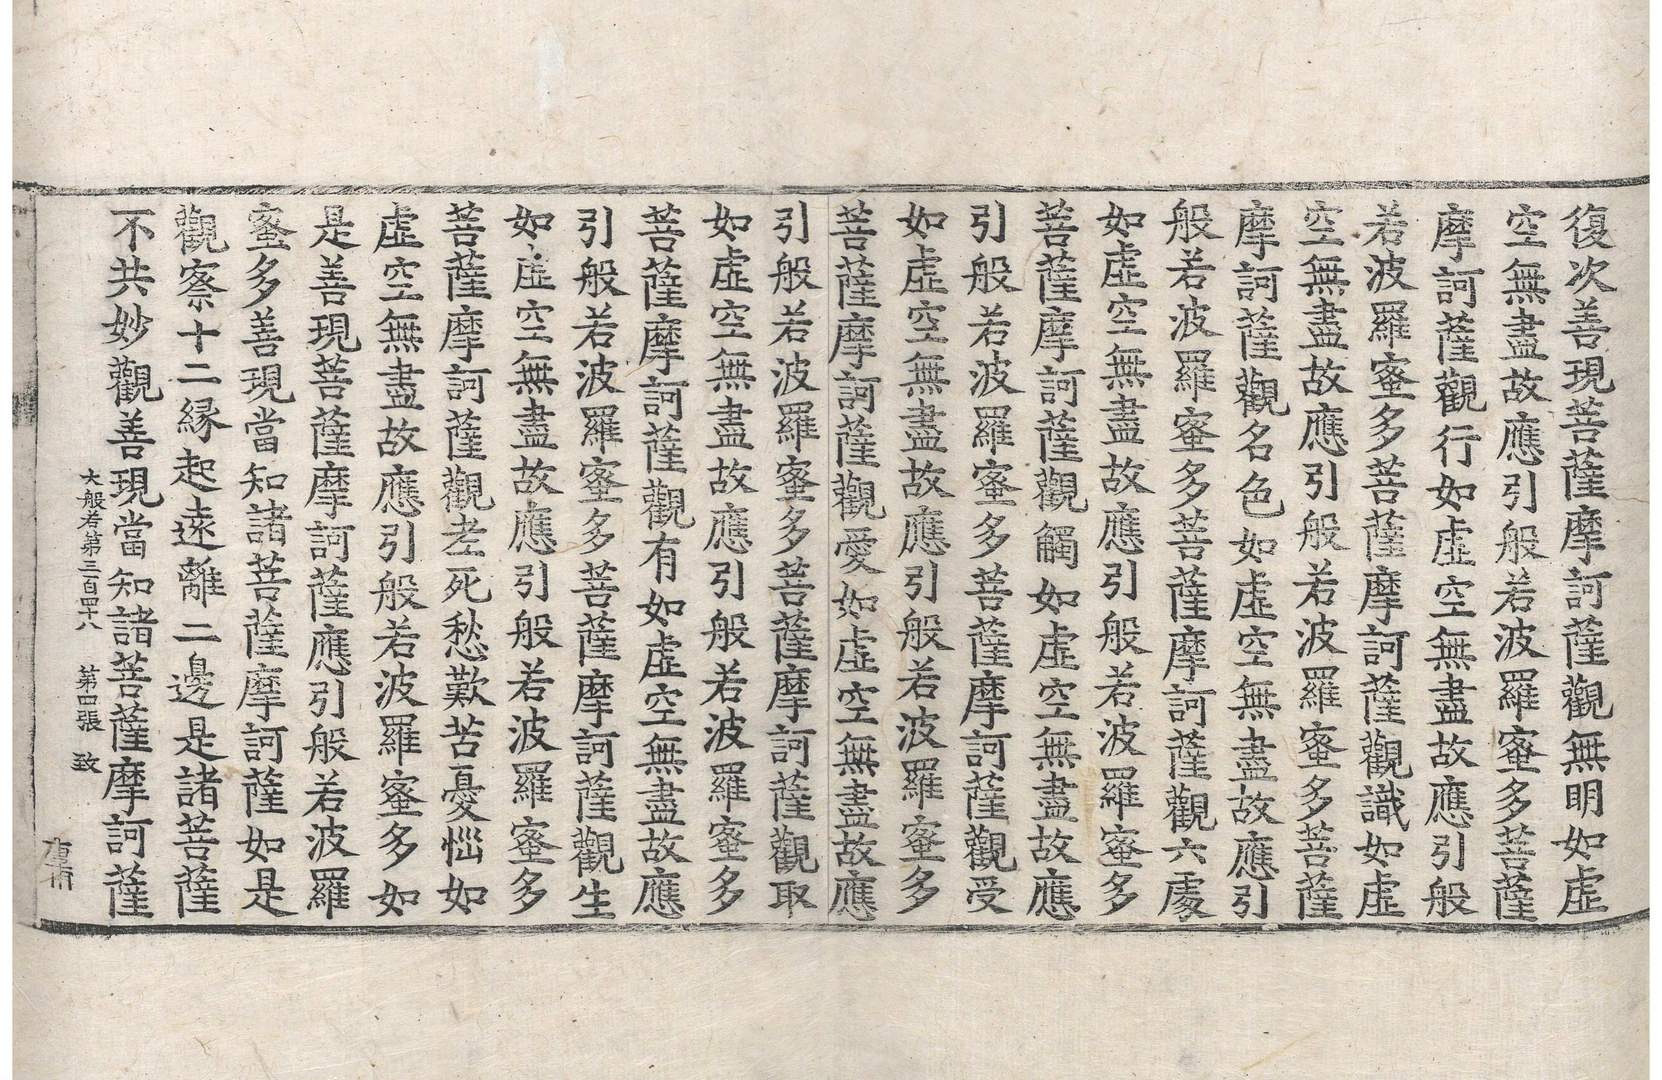 復次善現菩薩摩訶薩觀無明如虛
空無盡故應引般若波羅蜜多菩薩
摩訶薩觀行如虛空無盡故應引般
若波羅蜜多菩薩摩訶薩觀識如虛
空無盡故應引般若波羅蜜多菩薩
摩訶薩觀名色如虛空無盡故應引
般若波羅蜜多菩薩摩訶薩觀六處
如虛空無盡故應引般若波羅蜜多
菩薩摩訶薩觀觸如虛空無盡故應
引般若波羅蜜多菩薩摩訶薩觀受
如虛空無盡故應引般若波羅蜜多
菩薩摩訶薩觀愛如虛空無盡故應
引般若波羅蜜多菩薩摩訶薩觀取
如虛空無盡故應引般若波羅蜜多
菩薩摩訶薩觀有如虛空無盡故應
引般若波羅蜜多菩薩摩訶薩觀生
如虛空無盡故應引般若波羅蜜多
菩薩摩訶薩觀老死愁歎苦憂惱如
虛空無盡故應引般若波羅蜜多如
是善現菩薩摩訶薩應引般若波羅
蜜多善現當知諸菩薩摩訶薩如是
觀察十二緣起遠離二邊是諸菩薩
不共妙觀善現當知諸菩薩摩訶薩
大般若第三百四十八 第四張 致